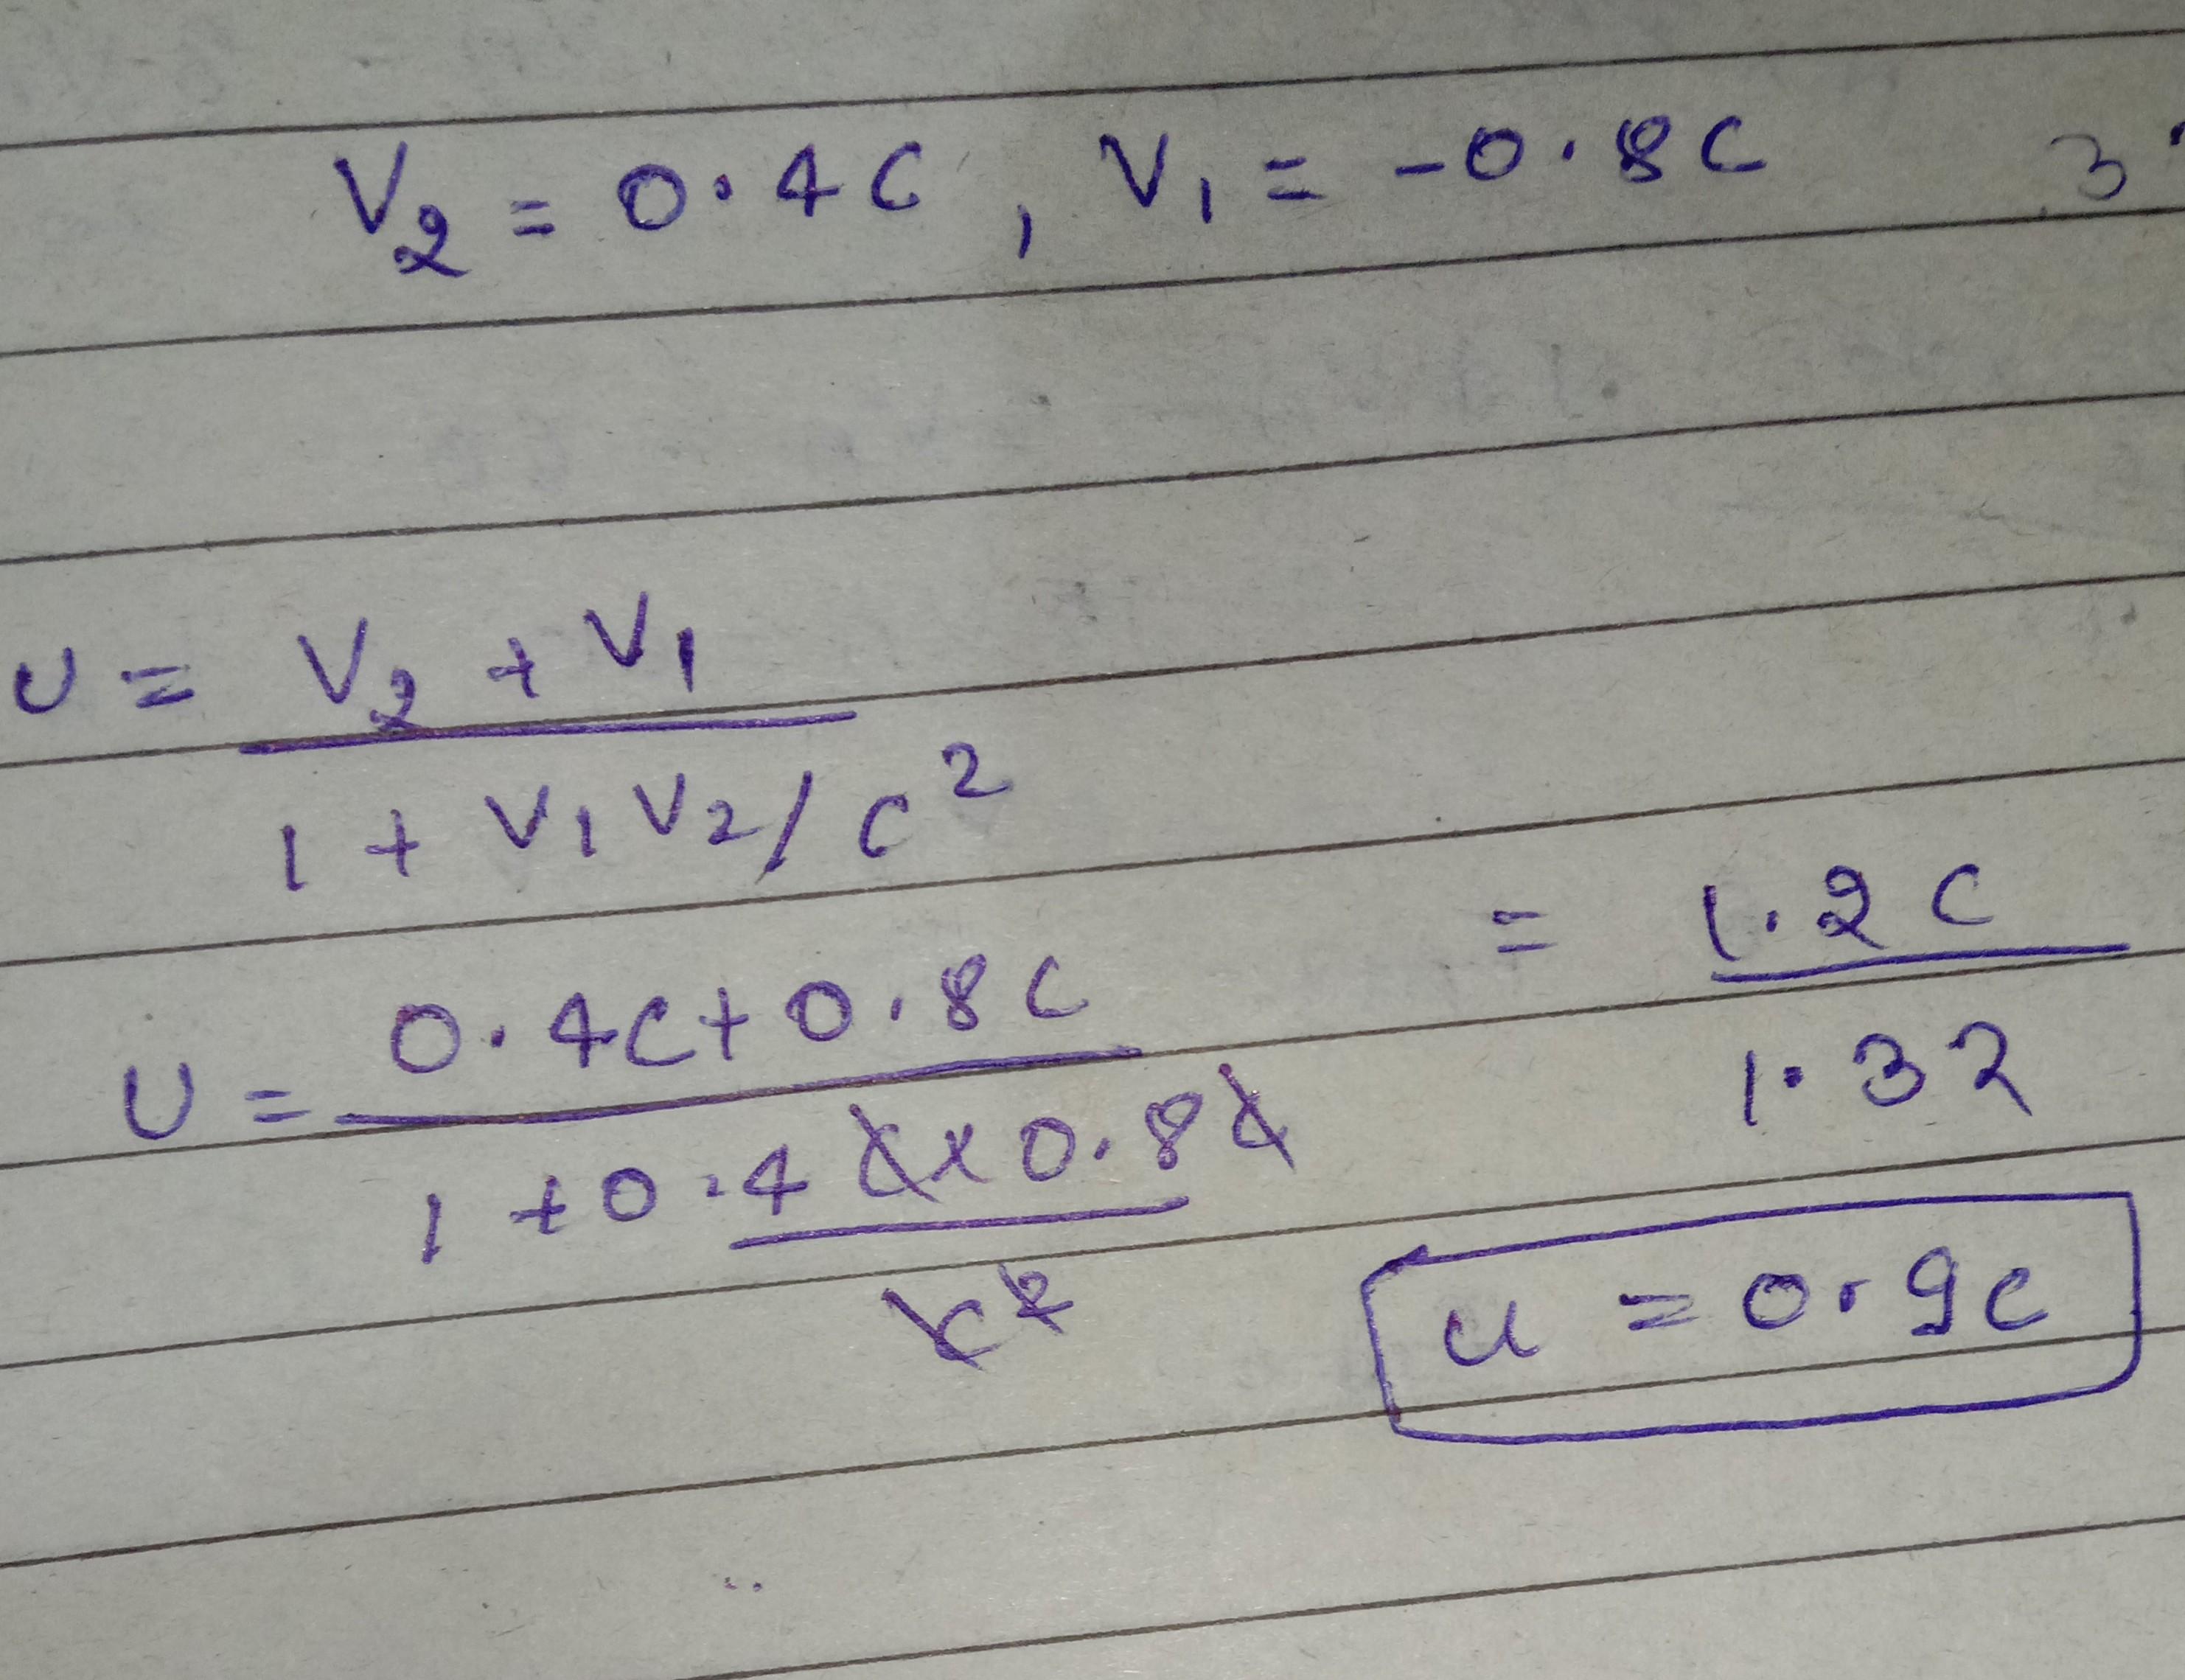 V₂ = 0.4C , V₁ = -0.8C 3
U = V₂ + V₁
1 + V₁V₂/c²
U = 0.4C + 0.8C = 1.2C
1 + 0.4C x 0.8C 1.32
c²
u = 0.9c